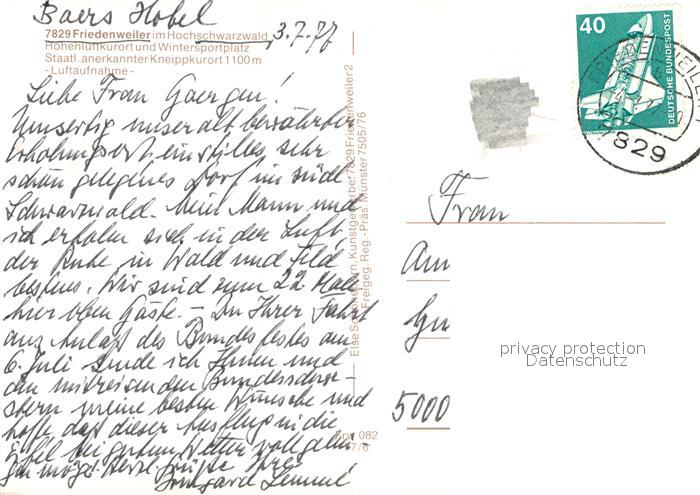 Baers Hobel
3.7.77
7829 Friedenweiler im Hochschwarzwald
Höhenluftkurort und Wintersportplatz
Staatl. anerkannter Kneippkurort 1100 m
- Luftaufnahme -
Liebe Frau Goergen!
Umseitig unser alt bewährter
Erholungsort, ein stilles, sehr
schön gelegenes Dorf im südl.
Schwarzwald. Mein Mann und
ich erholen sich in der Luft,
der Ruhe in Wald und Feld
bestens. Wir sind zum 22. Male
hier oben Gäste. – Zu Ihrer Fahrt
aus Anlaß des Bundesfestes am
6. Juli sende ich Ihnen und
den mitreisenden Bundesschwe-
stern meine besten Wünsche und
hoffe daß dieser Ausflug in die
Eifel bei gutem Wetter
möge. Herzl. Grüße Ihre
Irmgard
Else Schöne
Kunstgewerbe, 7829 Friedenweiler 2
Freigeg. Reg.-Präs. Münster 7505/76
082
7/6
40
DEUTSCHE BUNDESPOST
829
Frau
Am
Gu
5000
privacy protection
Datenschutz